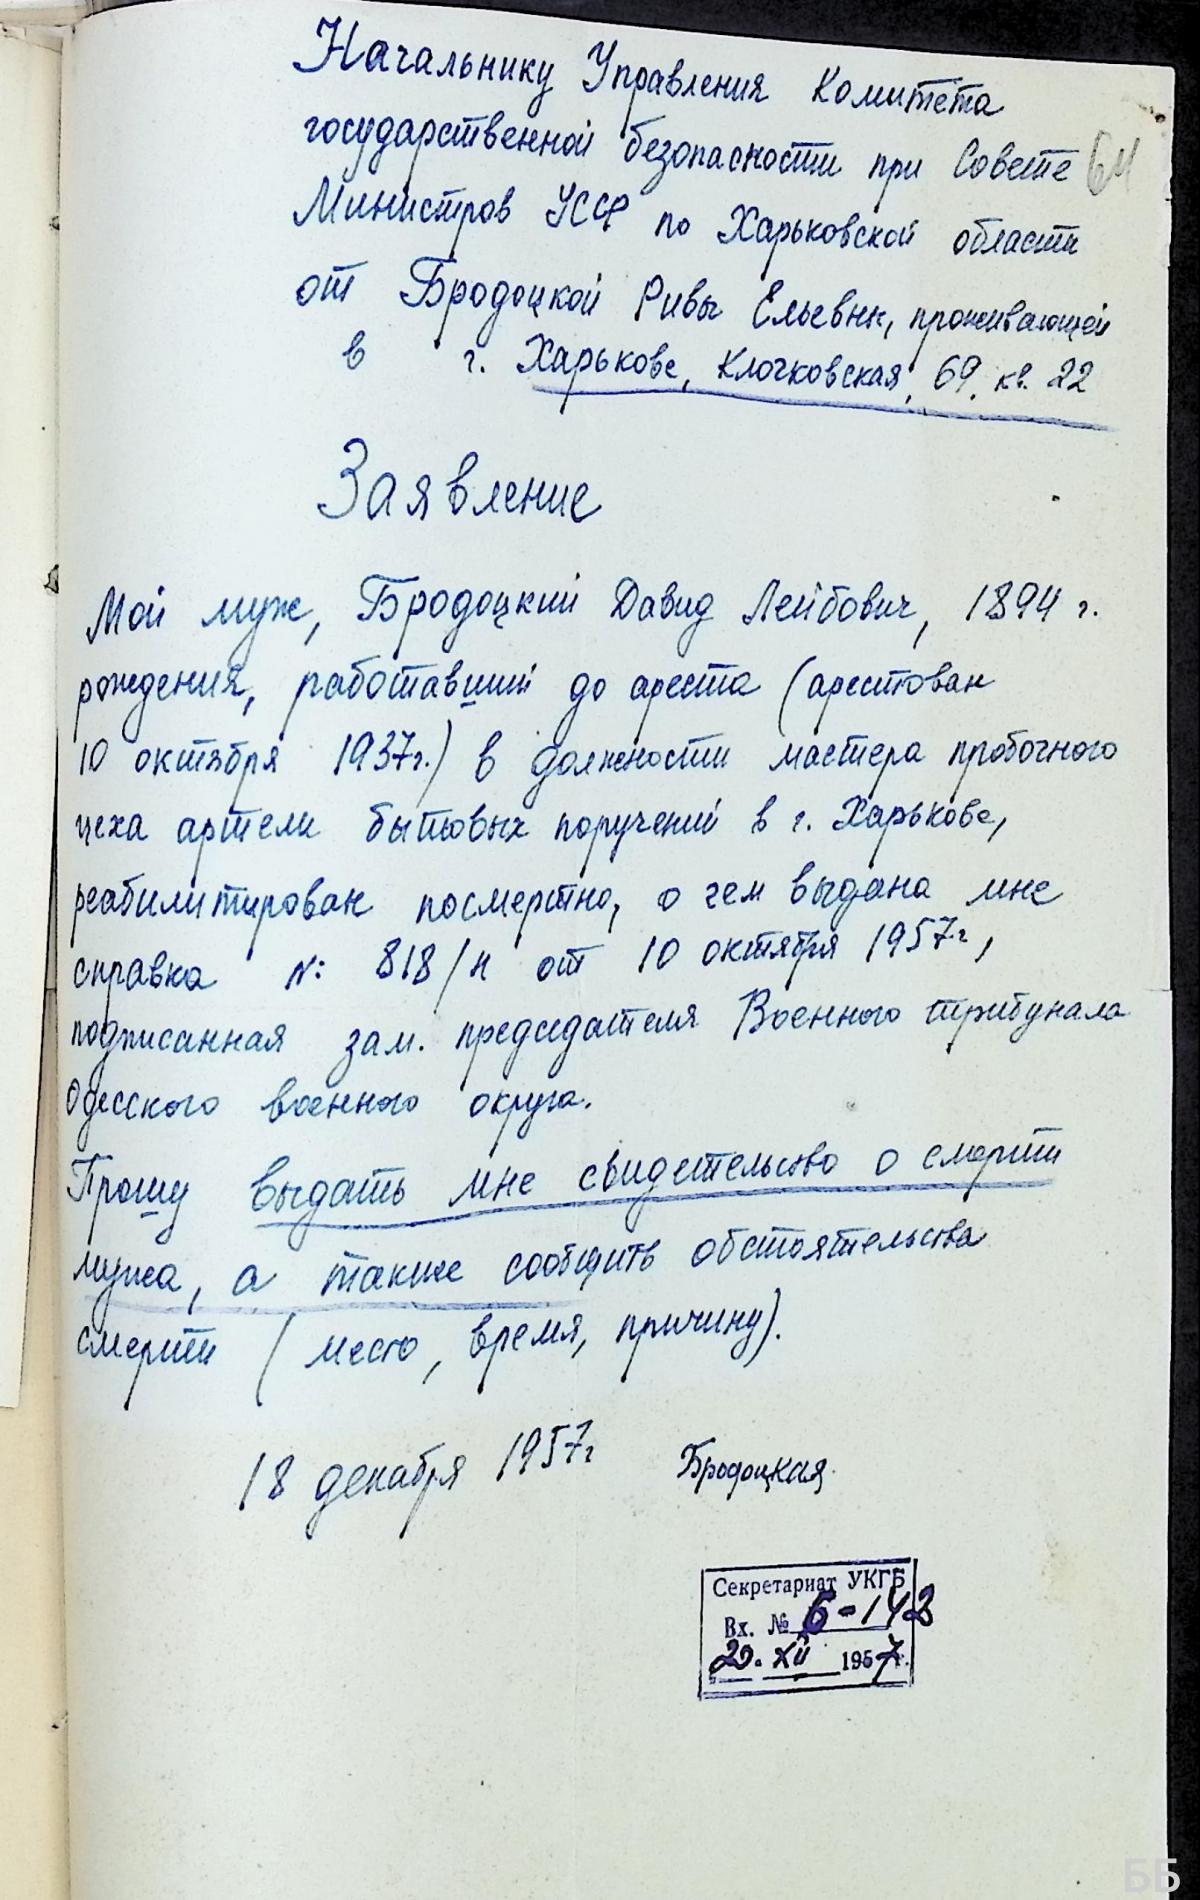 Начальнику Управления Комитета
государственной безопасности при Совете
64
Министров УССР по Харьковской области
от Бродоцкой Ривы Ельевны, проживающей
в г. Харькове, Клочковская, 69, кв. 22
Заявление
Мой муж, Бродоцкий Давид Лейбович, 1894 г.
рождения, работавший до ареста (арестован
10 октября 1937г.) в должности мастера пробочного
цеха артели бытовых поручений в г. Харькове,
реабилитирован посмертно, о чем выдана мне
справка №: 818/н от 10 октября 1957г,
подписанная зам. председателя Военного трибунала
Одесского военного округа.
Прошу выдать мне свидетельство о смерти
мужа, а также сообщить обстоятельства
смерти (место, время, причину).
18 декабря 1957г Бродоцкая
Секретариат УКГБ
Вх. № Б-142
20. XII 1957г.
ББ